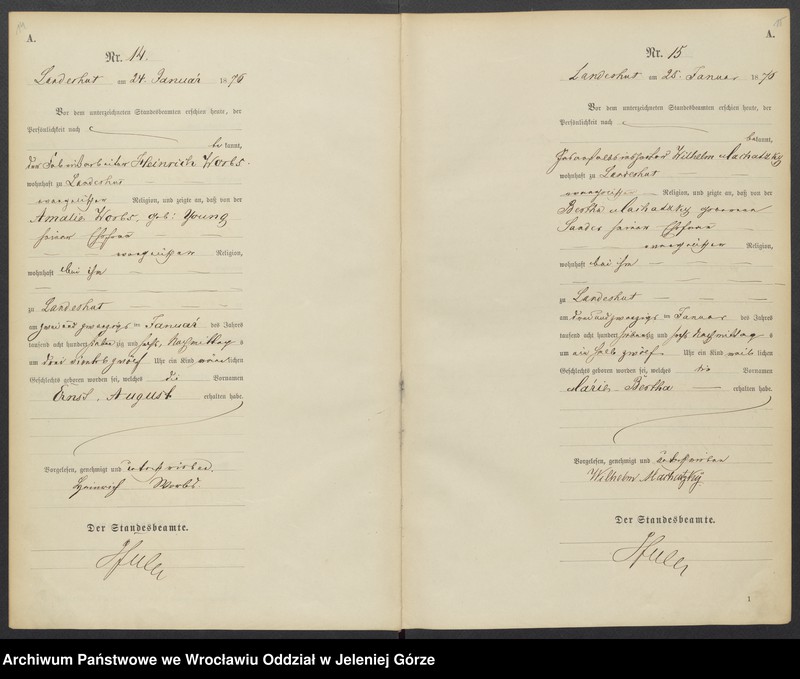 A.
Nr. 14.
Landeshut am 24. Januar 1876
Vor dem unterzeichneten Standesbeamten erschien heute, der
Persönlichkeit nach
be kannt,
der Fabrikarbeiter Heinrich Werbs
wohnhaft zu Landeshut
evangelischer Religion, und zeigte an, daß von der
Amalie Werbs, geb: Young
seiner Ehefrau
evangelischer Religion,
wohnhaft bei ihm
zu Landeshut
am zwei und zwanzigs ten Januar des Jahres
tausend acht hundert sieben zig und sechs Nachmittag s
um drei viertel zwölf Uhr ein Kind männ lichen
Geschlechts geboren worden sei, welches die Vornamen
Ernst, August erhalten habe.
Vorgelesen, genehmigt und unterschrieben.
Heinrich Werbs
Der Standesbeamte.
A.
Nr. 15
Landeshut am 25. Januar 1876
Vor dem unterzeichneten Standesbeamten erschien heute, der
Persönlichkeit nach
bekannt,
Wilhelm Machatzky
wohnhaft zu Landeshut
evangelischer Religion, und zeigte an, daß von der
Bertha Machatzky geborenen
Sander seiner Ehefrau
evangelischer Religion,
wohnhaft bei ihm
zu Landeshut
am drei und zwanzigs ten Januar des Jahres
tausend acht hundert siebenzig und sechs Nachmittag s
um ein halb zwölf Uhr ein Kind weib lichen
Geschlechts geboren worden sei, welches die Vornamen
Marie Bertha erhalten habe.
Vorgelesen, genehmigt und unterschrieben
Wilhelm Machatzky
Der Standesbeamte.
1
Archiwum Państwowe we Wrocławiu Oddział w Jeleniej Górze